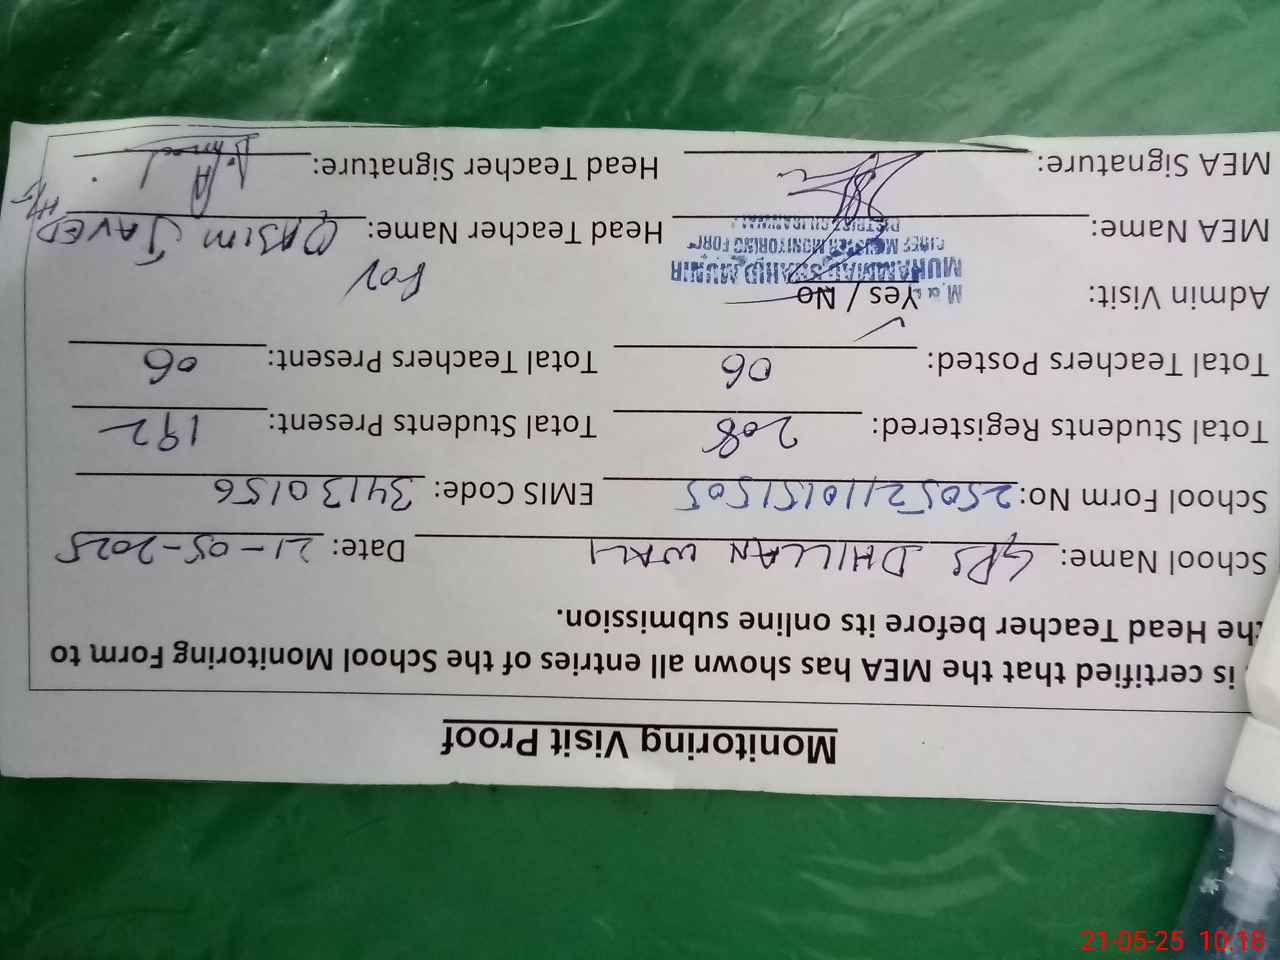 Monitoring Visit Proof
is certified that the MEA has shown all entries of the School Monitoring Form to
the Head Teacher before its online submission.
School Name: GPS DHILLAN WALI Date: 21-05-2025
School Form No: EMIS Code: 34130156
Total Students Registered: 208 Total Students Present: 192
Total Teachers Posted: 06 Total Teachers Present: 06
Admin Visit: Yes / No For
MUHAMMAD SHAHID MUNIR
MONITORING FORCE
DISTRICT GUJRANWALA
MEA Name: Head Teacher Name: QASIM JAVED H/T
MEA Signature: Head Teacher Signature:
21-05-25 10:18